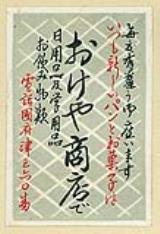 毎度有難う御座います
いつも新しいパンとお菓子は
おけや商店で
日用品及学用品
お飲み物類
電話國府津三六〇番